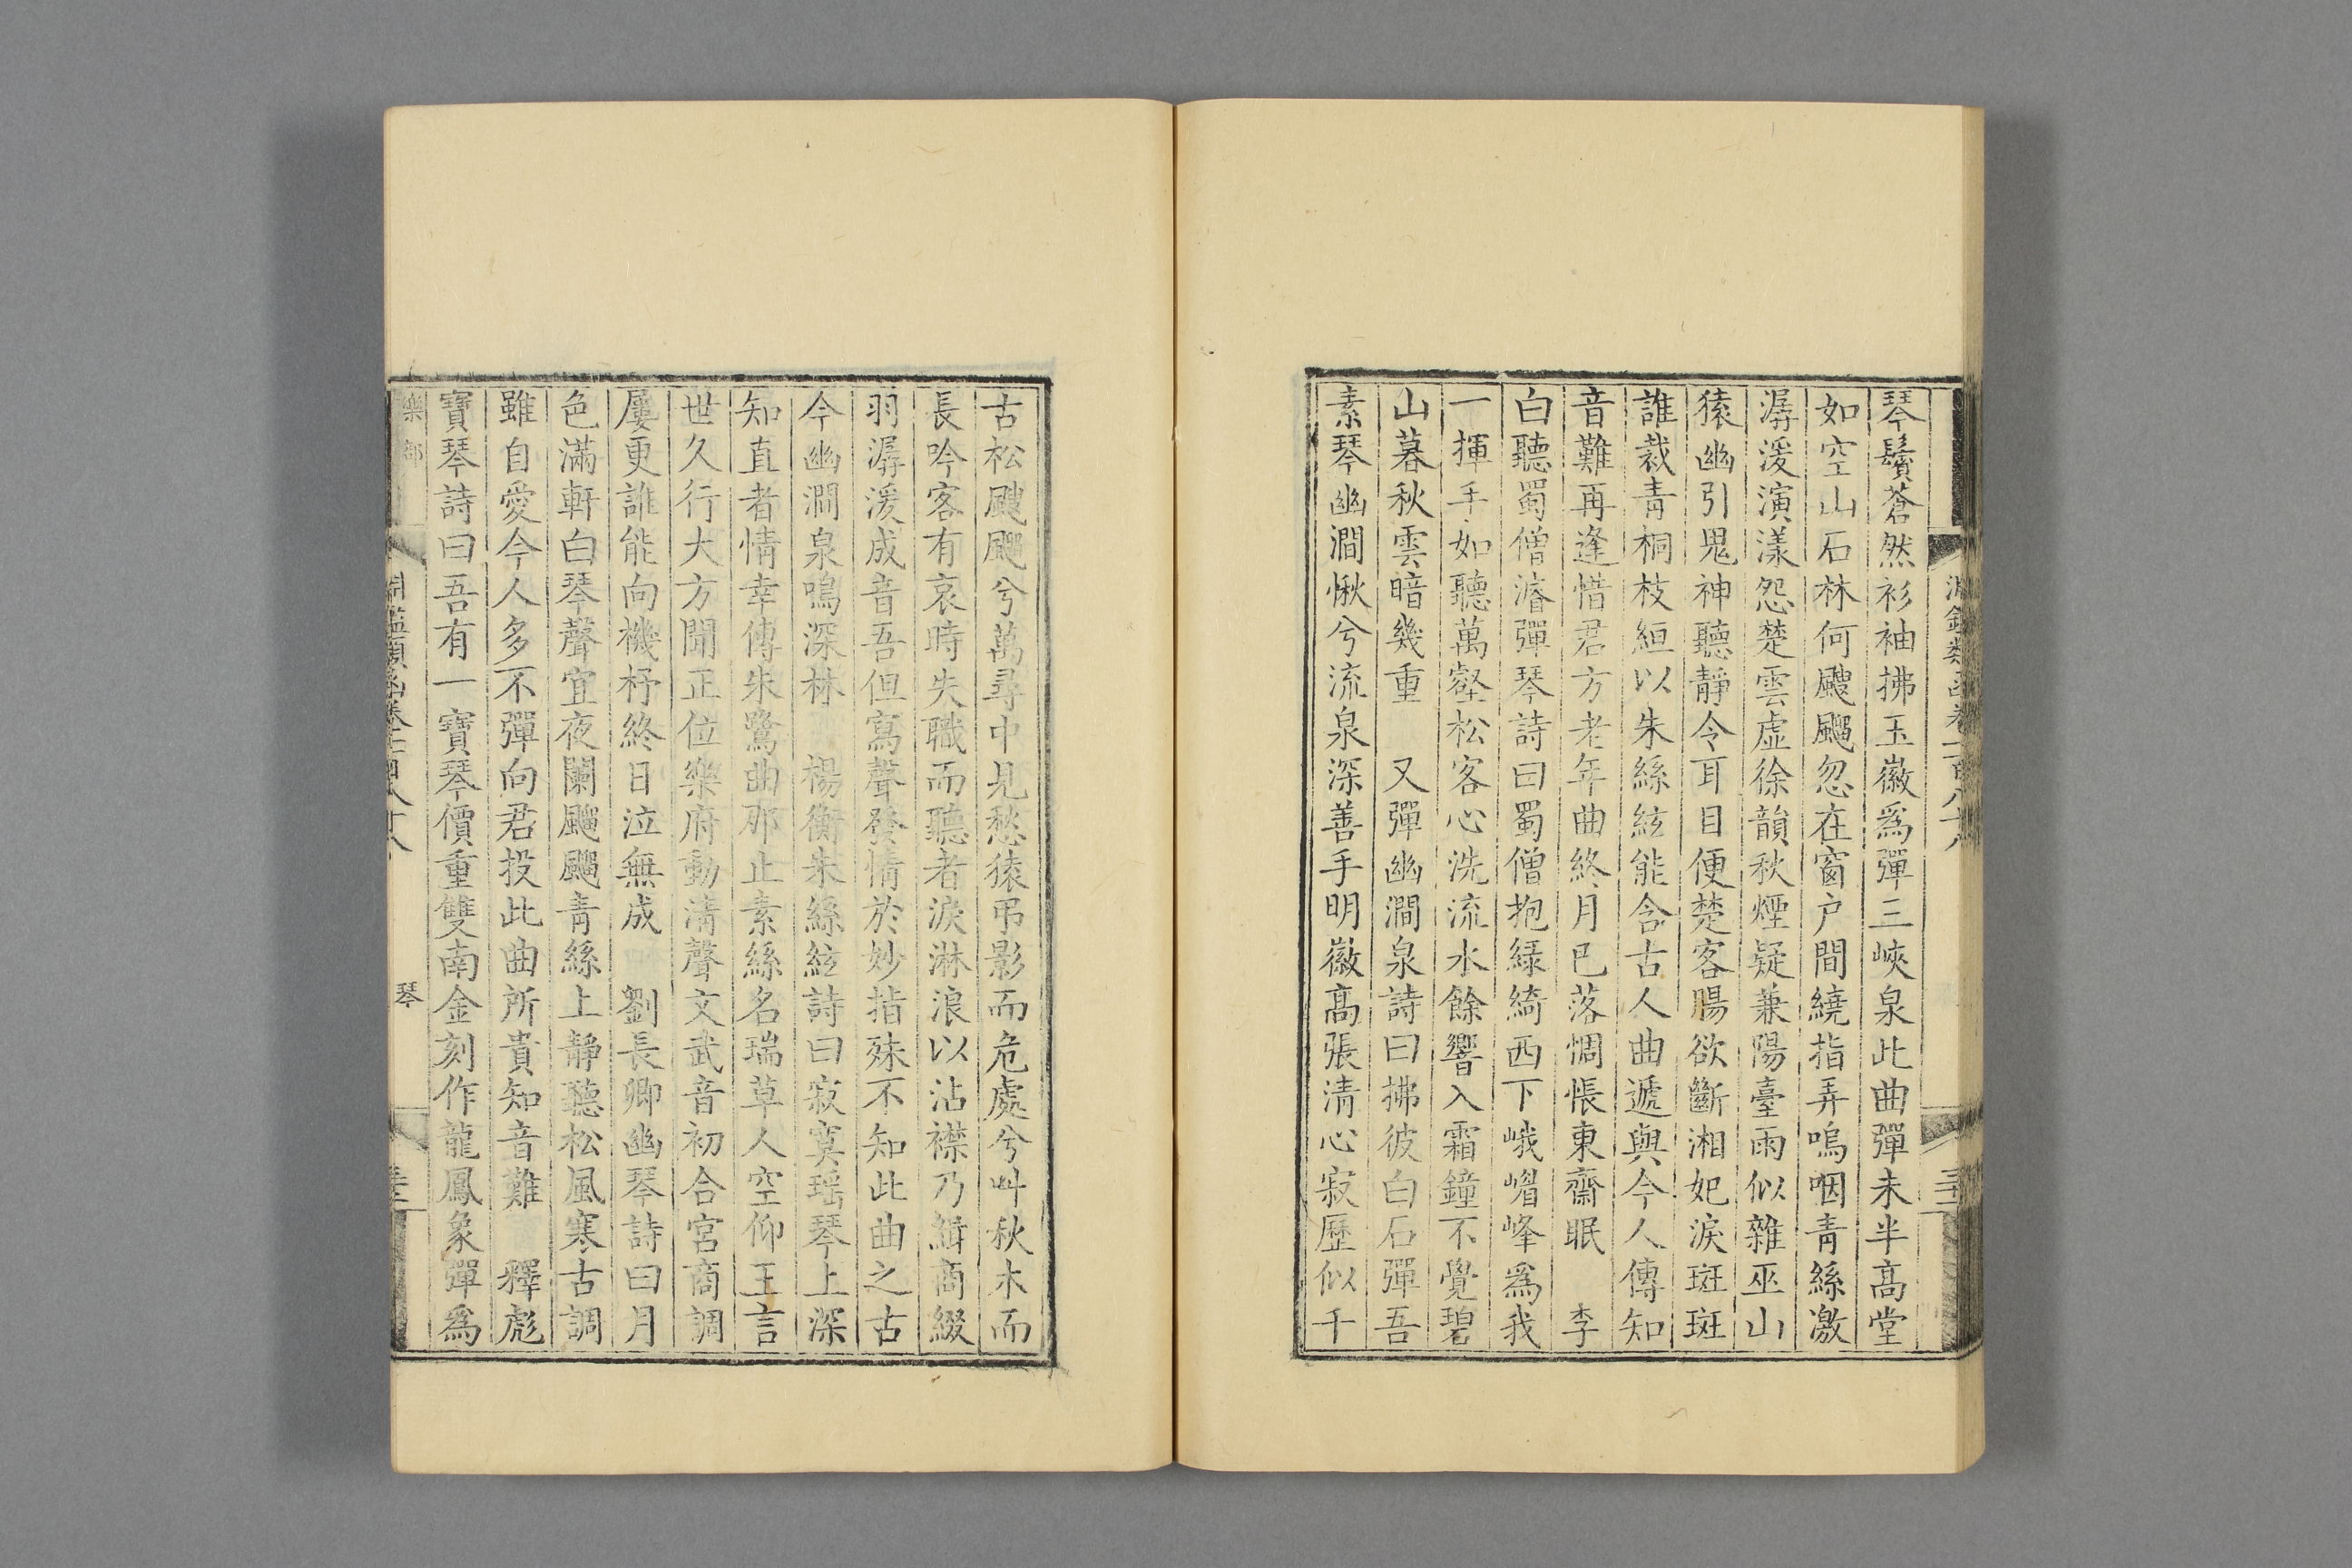 琴鬢蒼然衫袖拂玉徽爲彈三峽泉此曲彈未半高堂
如空山石林何颼飀忽在窗户間繞指弄嗚咽青絲激
潺湲演漾怨楚雲虛徐韻秋煙疑兼陽臺雨似雜巫山
猿幽引鬼神聽靜令耳目便楚客腸欲斷湘妃淚斑斑
誰裁青桐枝絙以朱絲絃能含古人曲遞與今人傳知
音難再逢惜君方老年曲終月已落惆悵東齋眠 李
白聽蜀僧濬彈琴詩曰蜀僧抱緑綺西下峨嵋峰爲我
一揮手如聽萬壑松客心洗流水餘響入霜鐘不覺碧
山暮秋雲暗幾重 又彈幽澗泉詩曰拂彼白石彈吾
素琴幽澗愀兮流泉深善手明徽高張清心寂歷似千
古松颼飀兮萬尋中見愁猿弔影而危處兮叫秋木而
長吟客有哀時失職而聽者淚淋浪以沾襟乃緝商綴
羽潺湲成音吾但寫聲發情於妙指殊不知此曲之古
今幽澗泉鳴深林 楊衡朱絲絃詩曰寂寞瑶琴上深
知直者情幸傳朱鷺曲那止素絲名瑞草人空仰王言
世久行大方聞正位樂府動清聲文武音初合宮商調
屢更誰能向機杼終日泣無成 劉長卿幽琴詩曰月
色滿軒白琴聲宜夜闌飀飀青絲上靜聽松風寒古調
雖自愛今人多不彈向君投此曲所貴知音難 釋彪
寶琴詩曰吾有一寶琴價重雙南金刻作龍鳳象彈爲
樂部 淵鑑類函卷一百八十八 琴